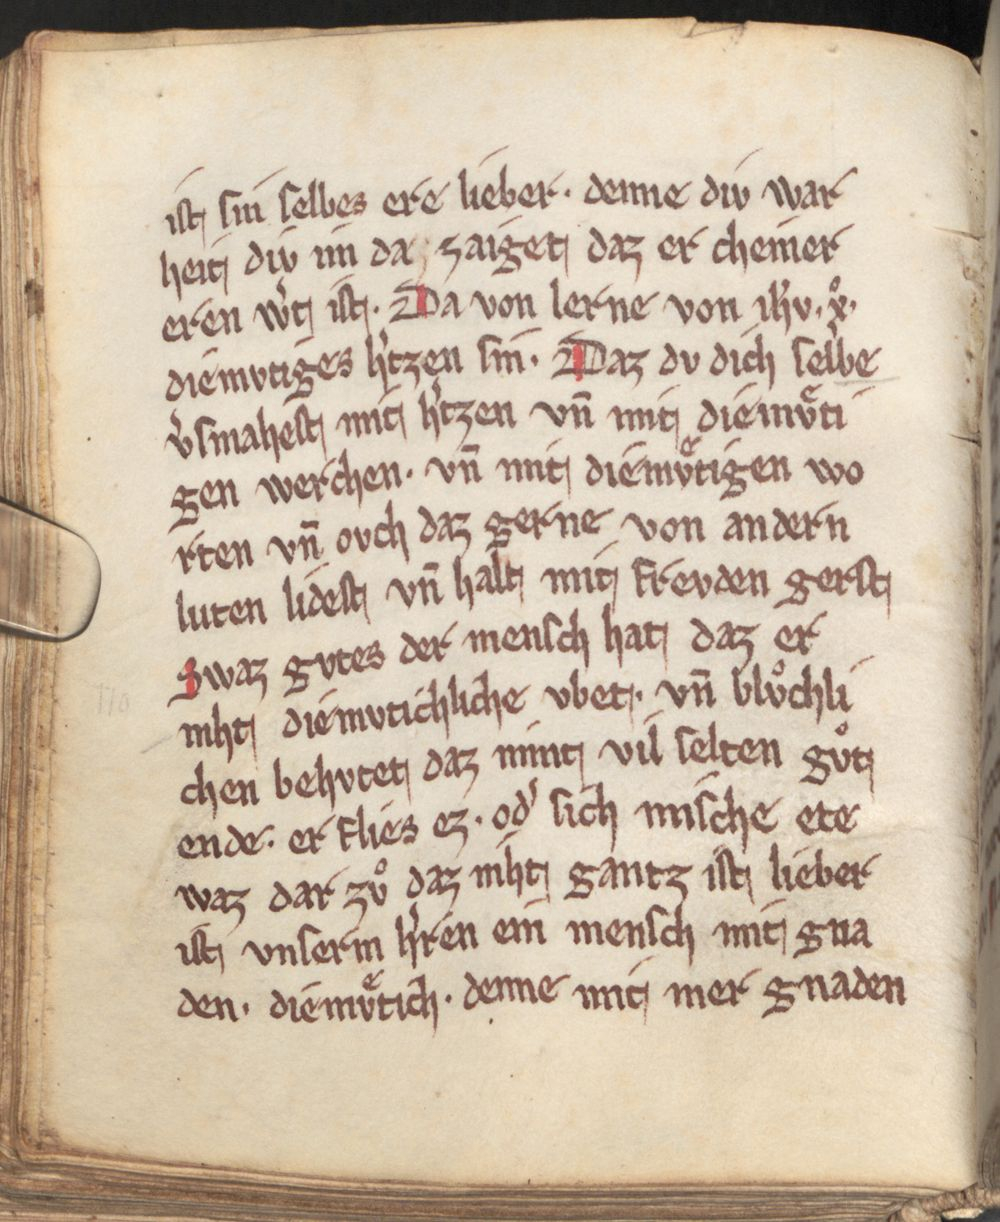 ist sin selbes ere lieber· denne div war
heit div im da zaiget daz er cheiner
eren w͛t ist· Da von lerne von ih͛v·xͦ·
diemvtiges h͛tzen sin· Daz dv dich selbe
v͛smahest mit h͛tzen vn̄ mit diemvͤti
gen werchen· vn̄ mit diemvͤtigen wo
rten vn̄ ovch daz gerne von andern
luten lidest vn̄ halt mit frevden gerst
Swaz gvtes der mensch hat daz er
niht diemvtichliche vbet· vn̄ blvͦchli
chen behvtet daz nimt vil selten gvͦt
ende· er flies ez· od͛ sich mische ete
waz dar zvͦ daz niht gantz ist lieber
ist vnserm h͛ren ein mensch mit gna
den· diemvͤtich· denne mit mer gnaden